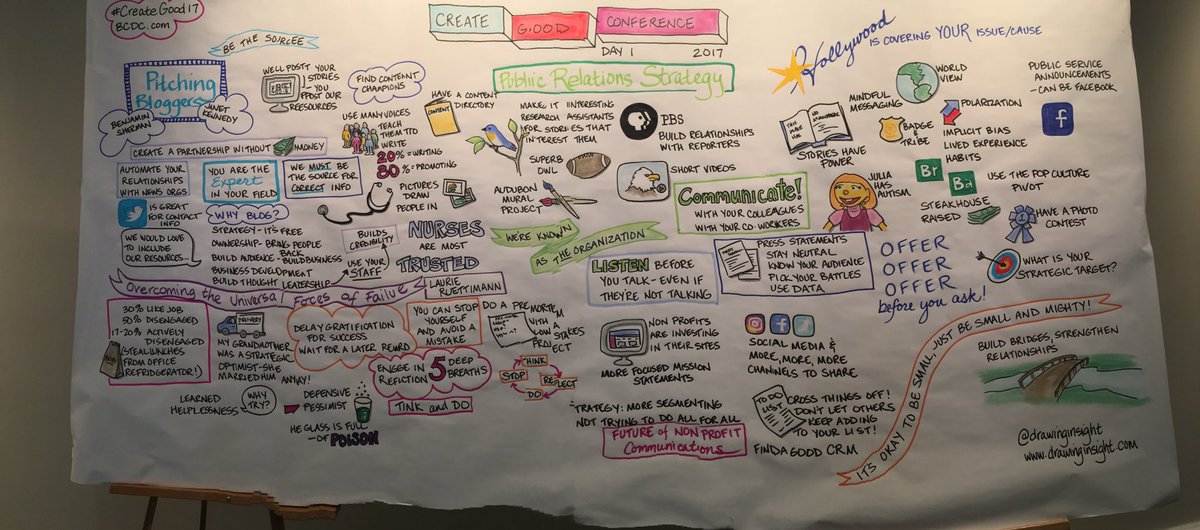 #CreateGood17
BCDC.com
CREATE
GOOD
CONFERENCE
DAY 1 2017
BE THE SOURCEE
Pitching
Bloggers
BENJAMIN
SHERMAN
JANET
KENNEDY
WELL POSTT YOUR
STORIES
- YOU
PPOST OUR
REESOURCES
FIND CONTENT
CHAMPIONS
USE MANY VOICES
TEACH THEM TTO
WRITE
20%=WRITING
80%=PROMOTING
CREATE A PARTNERSHIP WITHOUT MONEY
AUTOMATE YOUR
RELATIONSHIPS
WITH NEWS ORGS.
YOU ARE THE
Expert
IN YOUR FIELD
WE MUST BE
THE SOURCE FOR
CORRECT INFO
IS GREAT
FOR CONTACT
INFO
WE WOULD LOVE
TO INCLUDE
OUR RESOURCES...
WHY BLOG?
STRATEGY - IT'S FREE
OWNERSHIP - BRING PEOPLE
BACK
BUILD AUDIENCE - BUILD BUSINESS
BUSINESS DEVELOPMENT
BUILD THOUGHT LEADERSHIP
BUILDS
CREDIBILITY
USE YOUR
STAFF
PICTURES
DRAW
PEOPLE IN
NURSES
ARE MOST
TRUSTED
Public Relations Strategy
HAVE A CONTENT
DIRECTORY
CONTENT
MAKE IT IINTERESTING
RESEARCH ASSISTANTS
FOR STORIES THAT
INTEREST THEM
SUPERB
OWL
AUDUBON
MURAL
PROJECT
PBS
BUILD RELATIONSHIPS
WITH REPORTERS
SHORT VIDEOS
WE'RE KNOWN
AS THE ORGANIZATION
Communicate!
WITH YOUR COLLEAGUES
WITH YOUR CO-WORKERS
LISTEN BEFORE
YOU TALK - EVEN IF
THEY'RE NOT TALKING
PRESS STATEMENTS
STAY NEUTRAL
KNOW YOUR AUDIENCE
PICK YOUR BATTLES
USE DATA
Hollywood
IS COVERING YOUR ISSUE/CAUSE
WORLD
VIEW
MINDFUL
MESSAGING
STORIES HAVE
POWER
BADGE
&
TRIBE
POLARIZATION
IMPLICIT BIAS
LIVED EXPERIENCE
HABITS
PUBLIC SERVICE
ANNOUNCEMENTS
- CAN BE FACEBOOK
f
JULIA
HAS
AUTISM
Br
Ba
USE THE POP CULTURE
PIVOT
STEAKHOUSE
RAISED
HAVE A PHOTO
CONTEST
OFFER
OFFER
OFFER
before you ask!
WHAT IS YOUR
STRATEGIC TARGET?
Overcoming the Universal Foces of Failure
LAURIE
RUETTIMANN
30% LIKE JOB
50% DISENGAGED
17-20% ACTIVELY
DISENGAGED
(STEAL LUNCHES
FROM OFFICE
REFRIDGERATOR!)
DELIVERY
MY GRANDMOTHER
WAS A STRATEGIC
OPTIMIST - SHE
MARRIED HIM ANYWAY!
LEARNED
HELPLESSNESS
WHY
TRY?
DEFENSIVE
PESSIMIST
HE GLASS IS FULL
- OF POISON
DELAY GRATIFICATION
FOR SUCCESS
WAIT FOR A LATER REWRD
YOU CAN STOP
YOURSELF
AND AVOID A
MISTAKE
ENGGE IN
REFLCTION
5 DEEP
BREATHS
TINK and DO
DO A PRE MORTEM
WITH
LOW A STAKES
PROJECT
THINK
REFLECT
DO
STOP
NON PROFITS
ARE INVESTING
IN THEIR SITES
MORE FOCUSED MISSION
STATEMENTS
TRATEGY: MORE SEGMENTING
NOT TRYING TO DO ALL FOR ALL
FUTURE of NON PROFIT
Communications
SOCIAL MEDIA &
MORE, MORE, MORE
CHANNELS TO SHARE
TO DO
LIST
CROSS THINGS OFF!
DON'T LET OTHERS
KEEP ADDING
TO YOUR LIST!
FIND A GOOD CRM
IT'S OKAY TO BE SMALL, JUST BE SMALL AND MIGHTY!
BUILD BRIDGES, STRENGTHEN
RELATIONSHIPS
@drawinginsight
www.drawinginsight.com